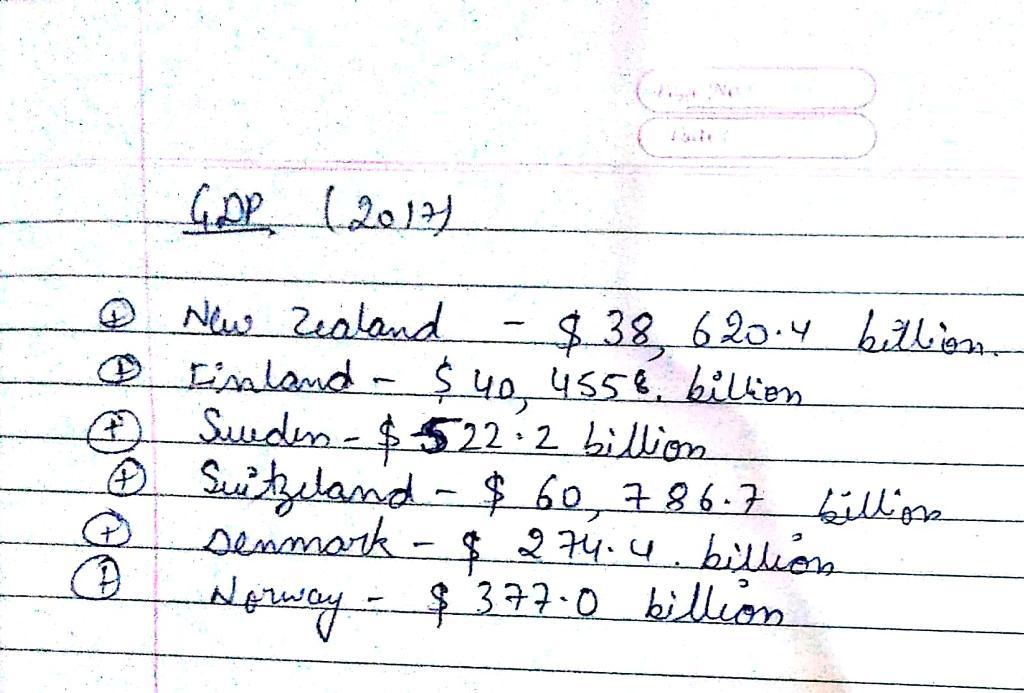 Page No.
Date
GDP (2017)
⊕ New Zealand - $ 38, 620.4 billion.
⊕ Finland - $ 40, 4558. billion
⊕ Sweden - $ 522.2 billion
⊕ Switzeland - $ 60, 786.7 billion
⊕ Denmark - $ 274.4. billion
⊕ Norway - $ 377.0 billion